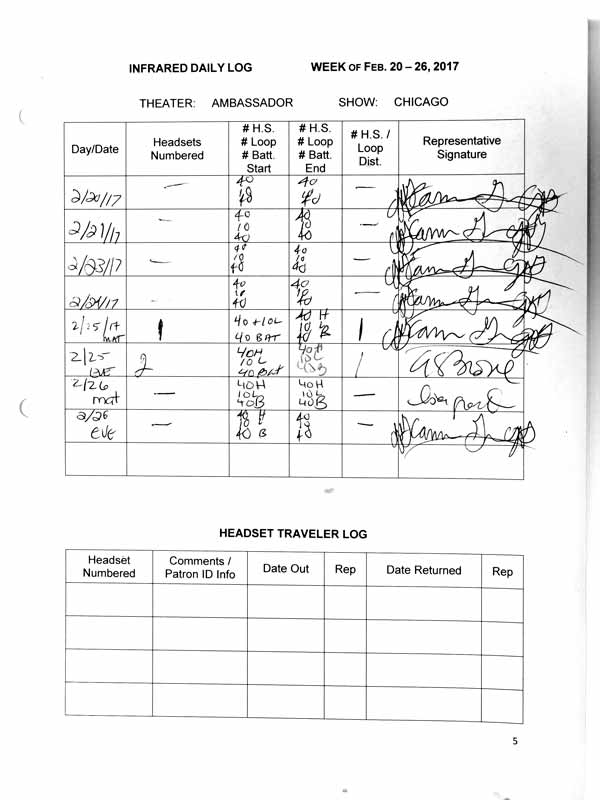 INFRARED DAILY LOG WEEK OF FEB. 20 – 26, 2017
THEATER: AMBASSADOR SHOW: CHICAGO
Day/Date
Headsets
Numbered
# H.S.
# Loop
# Batt.
Start
# H.S.
# Loop
# Batt.
End
# H.S. /
Loop
Dist.
Representative
Signature
2/20/17 — 40 10 40 40 40 —
2/21/17 — 40 10 40 40 10 40 —
2/23/17 — 40 10 40 40 10 40 —
2/24/17 — 40 10 40 40 10 40 —
2/25/17 MAT 1 40 + 10L 40 BAT 40 H 10 L 40 B 1
2/25 EVE 2 40H 10L 40BAT 40H 10L 40B 1
2/26 mat — 40H 10L 40B 40H 10L 40B —
2/26 EVE — 40 H 10 40 B 40 10 40 —
HEADSET TRAVELER LOG
Headset
Numbered
Comments /
Patron ID Info
Date Out
Rep
Date Returned
Rep
5